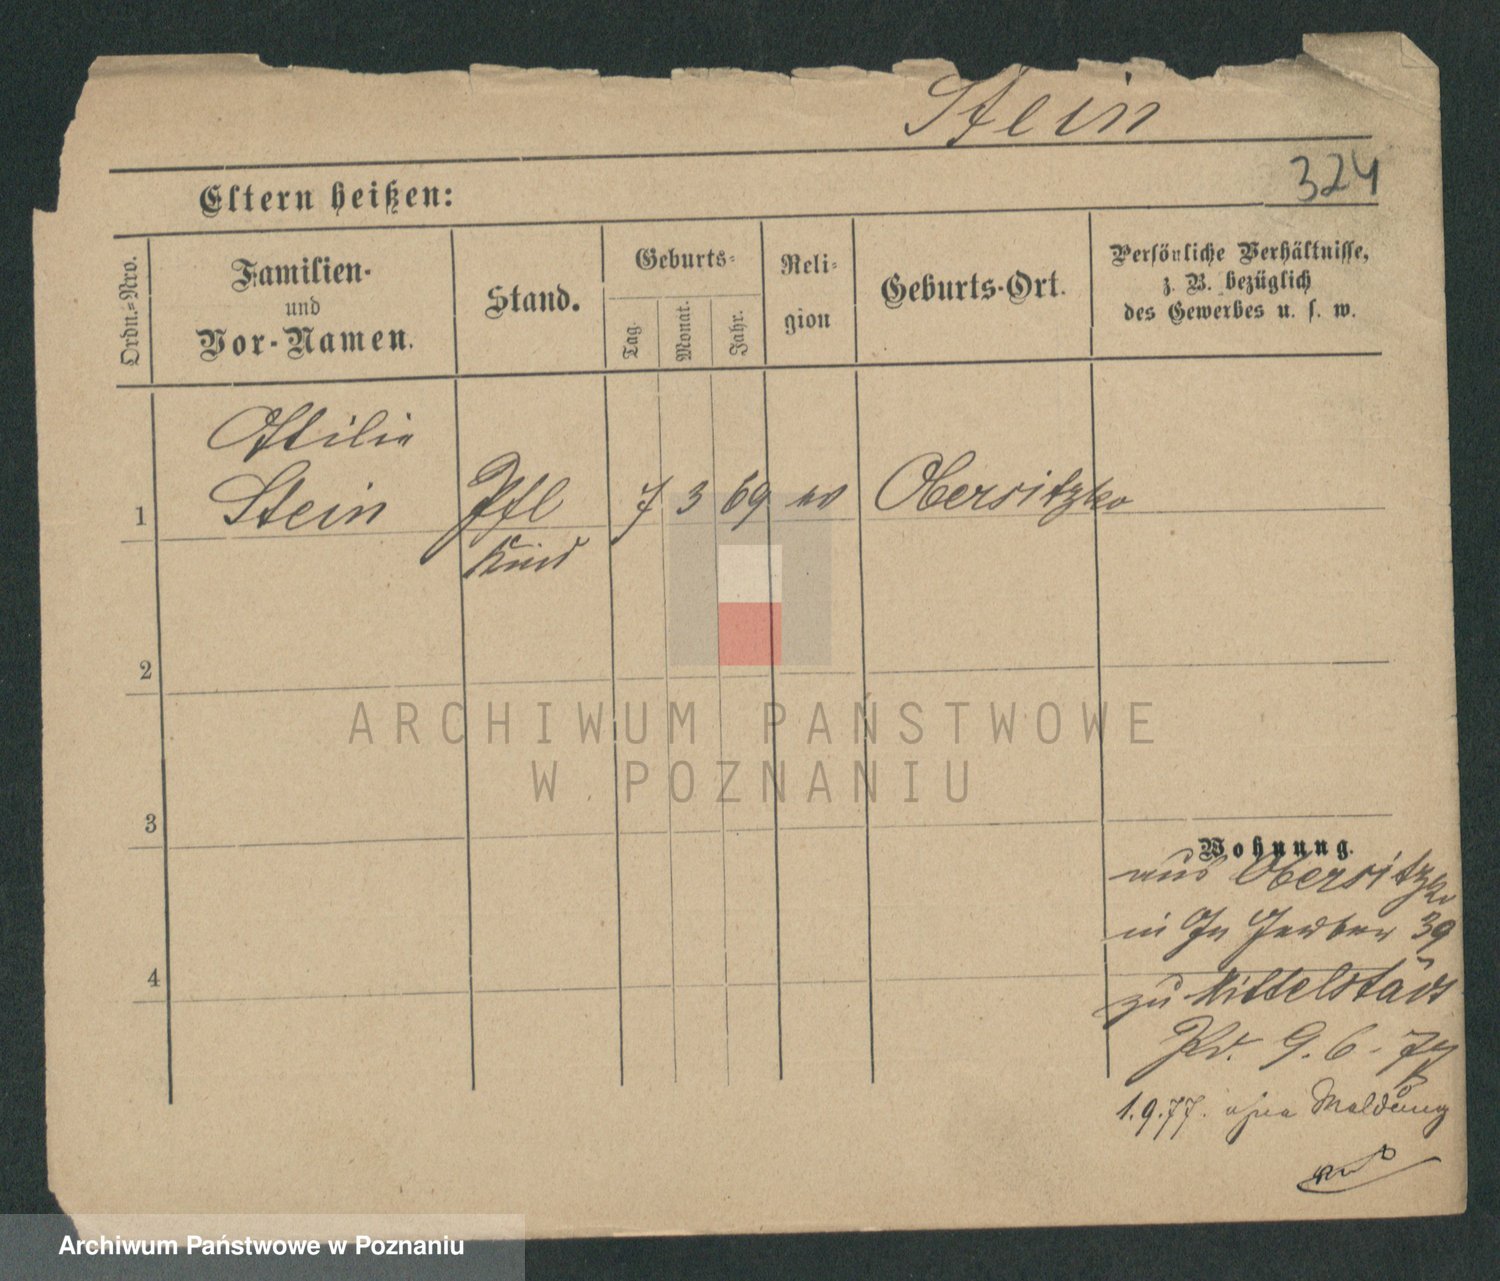 Stein
324
Eltern heißen:
Ordn.=Nro.
Familien-
und
Vor-Namen.
Stand.
Geburts=
Tag.
Monat.
Jahr.
Reli=
gion
Geburts-Ort.
Persönliche Verhältnisse,
z. B. bezüglich
des Gewerbes u. s. w.
Ottilie
1 Stein Pfl 7 3 69 ev Obersitzko
Kind
2
ARCHIWUM PAŃSTWOWE
W POZNANIU
3
Wohnung.
aus Obersitzko
4
in Gerber 39
zu Mittelstädt
9. 6. 77
1.9.77. ohne Meldung
Archiwum Państwowe w Poznaniu